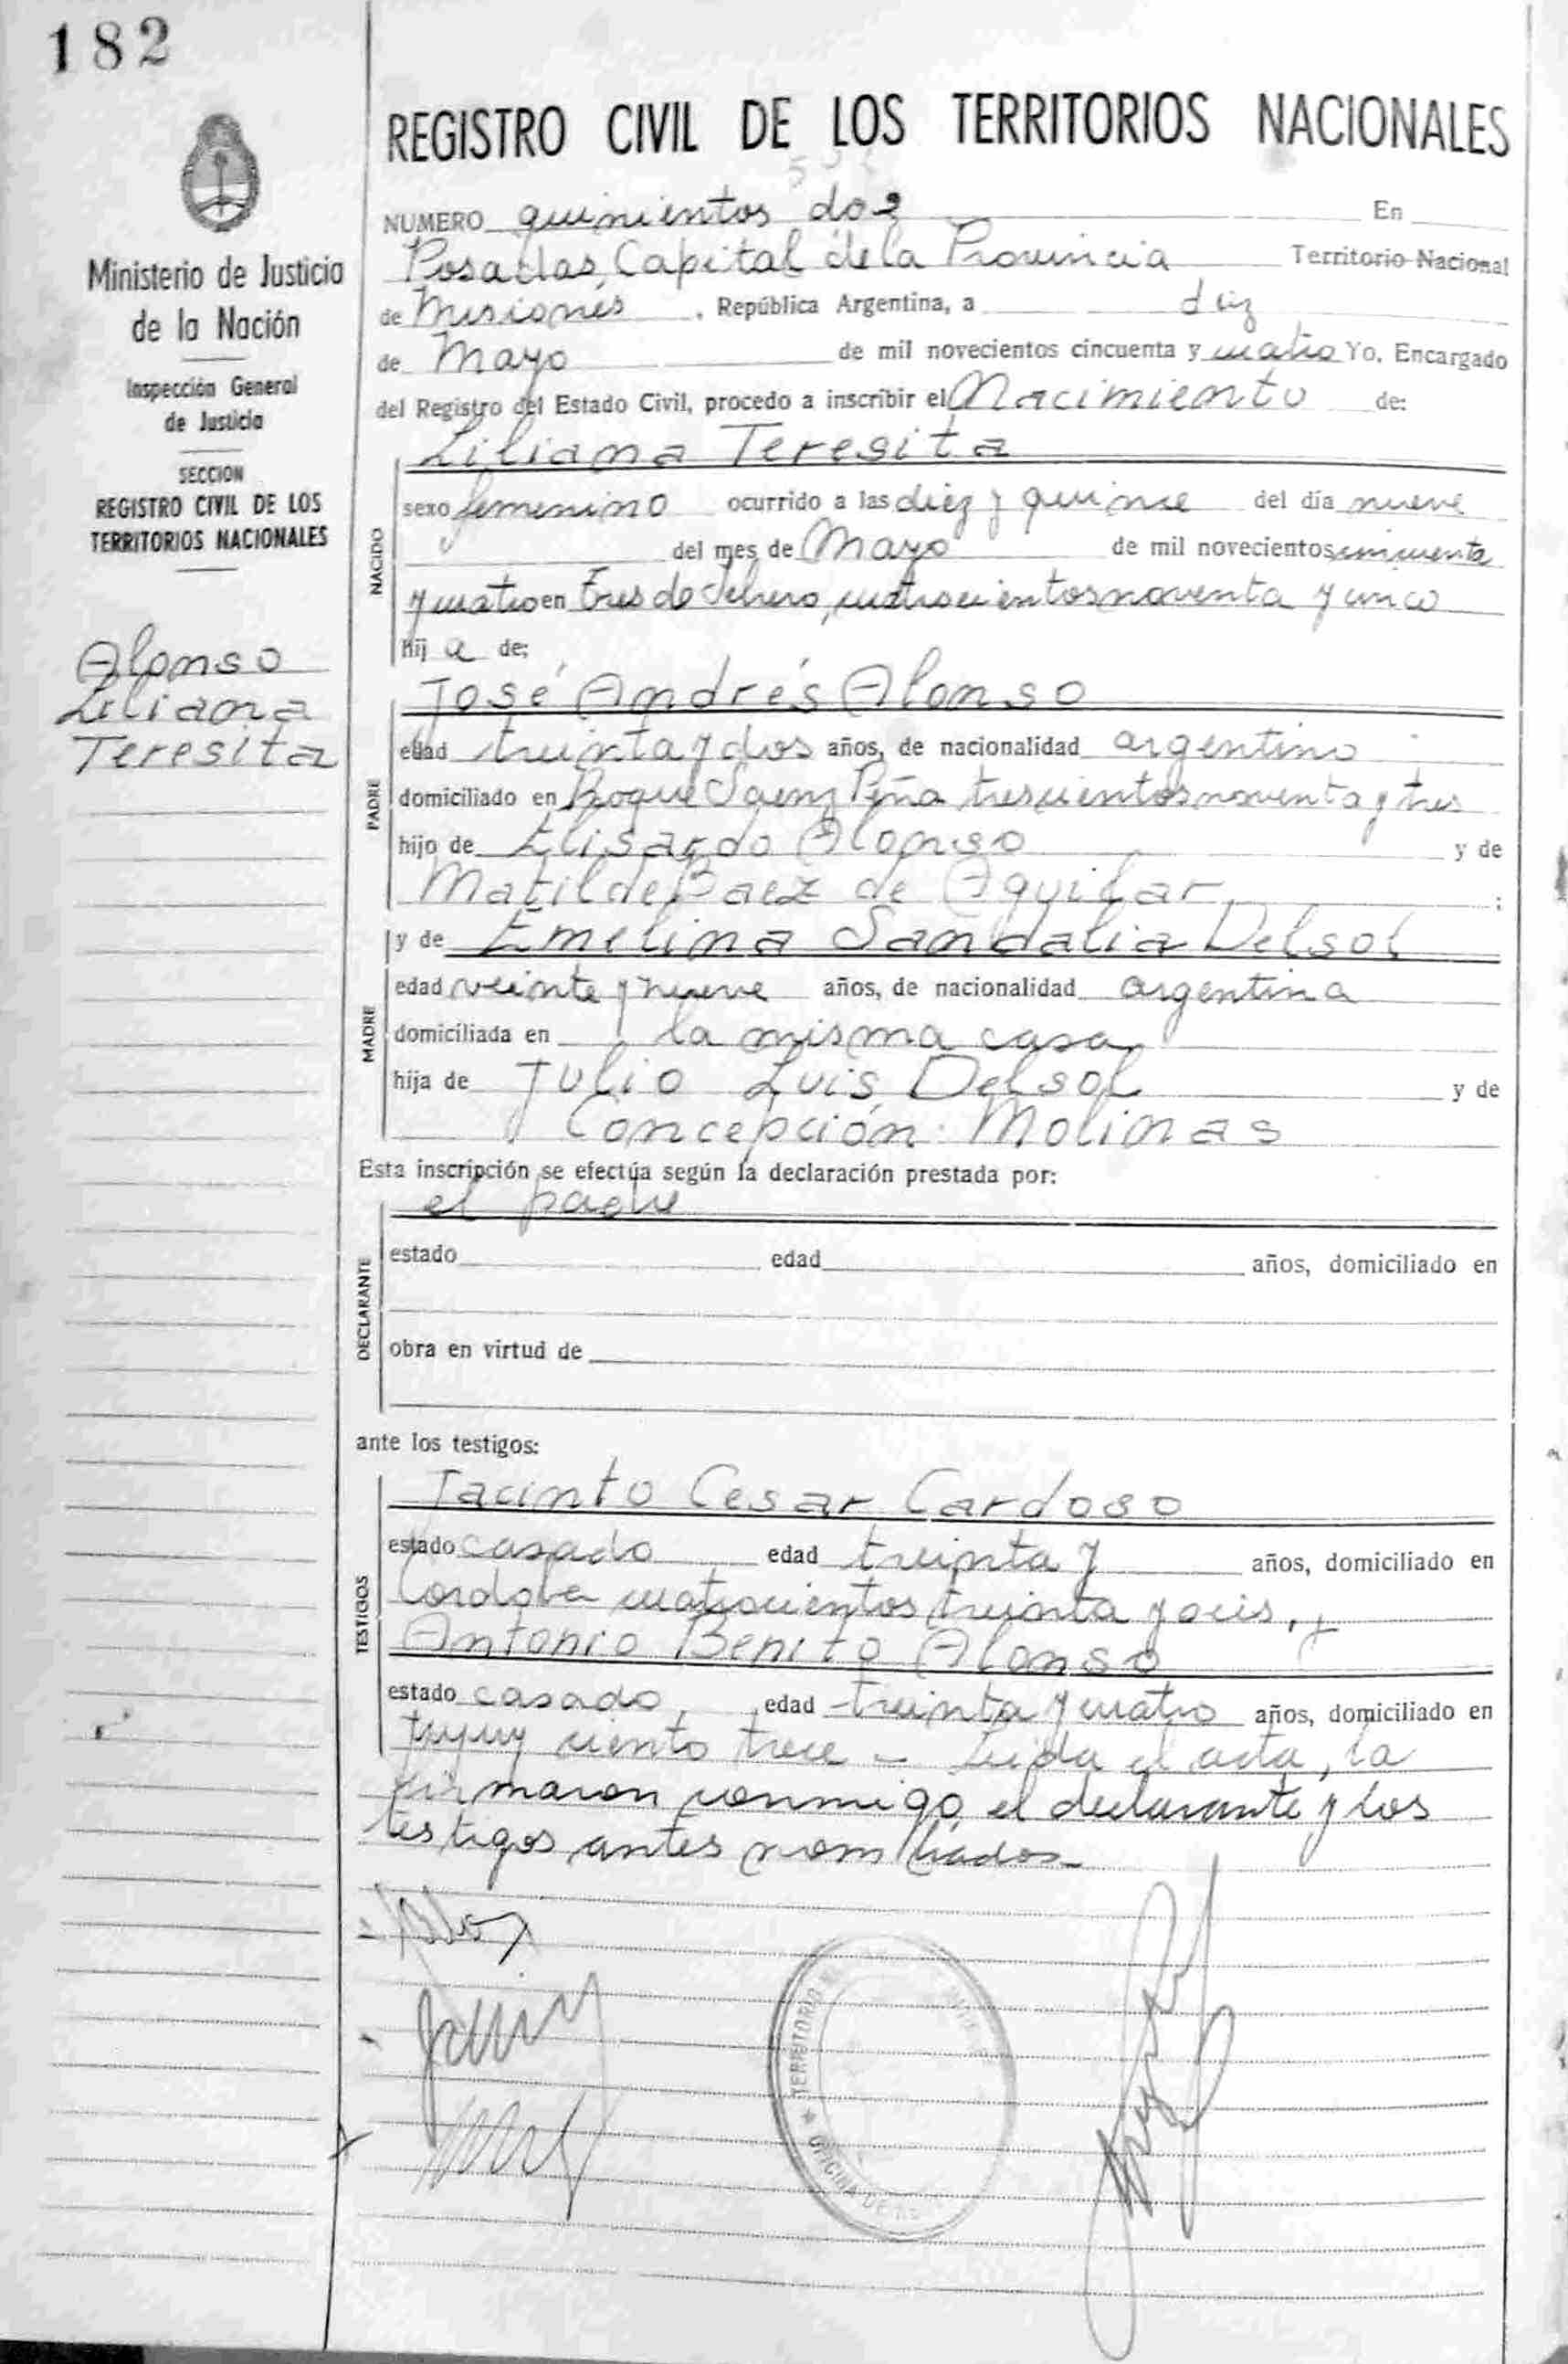 182
REGISTRO CIVIL DE LOS TERRITORIOS NACIONALES
Ministerio de Justicia
de la Nación
Inspección General
de Justicia
SECCION
REGISTRO CIVIL DE LOS
TERRITORIOS NACIONALES
Alonso
Liliana
Teresita
NUMERO quinientos dos En
Posadas, Capital de la Provincia Territorio Nacional
de Misiones , República Argentina, a diez
de Mayo de mil novecientos cincuenta y cuatro Yo, Encargado
del Registro del Estado Civil, procedo a inscribir el Nacimiento de:
Liliana Teresita
NACIDO
sexo femenino ocurrido a las diez y quince del día nueve
del mes de Mayo de mil novecientos cincuenta
y cuatro en Tres de Febrero, cuatrocientos noventa y cinco
hij a de:
José Andrés Alonso
PADRE
edad treinta y dos años, de nacionalidad argentino
domiciliado en Roque Saenz Peña trescientos noventa y tres
hijo de Elisardo Alonso y de
Matilde Baez de Aguilar ;
y de Emelina Sandalia Delsol
MADRE
edad veinte y nueve años, de nacionalidad argentina
domiciliada en la misma casa
hija de Julio Luis Delsol y de
Concepción Molinas
Esta inscripción se efectúa según la declaración prestada por:
el padre
DECLARANTE
estado edad años, domiciliado en
obra en virtud de
ante los testigos:
Jacinto Cesar Cardoso
TESTIGOS
estado casado edad treinta y años, domiciliado en
Cordoba cuatrocientos treinta y seis, y
Antonio Benito Alonso
estado casado, edad treinta y cuatro años, domiciliado en
Jujuy ciento trece - Leida el acta, la
firmaron conmigo el declarante y los
testigos antes nombrados
TERRITORIO
OFICINA DE